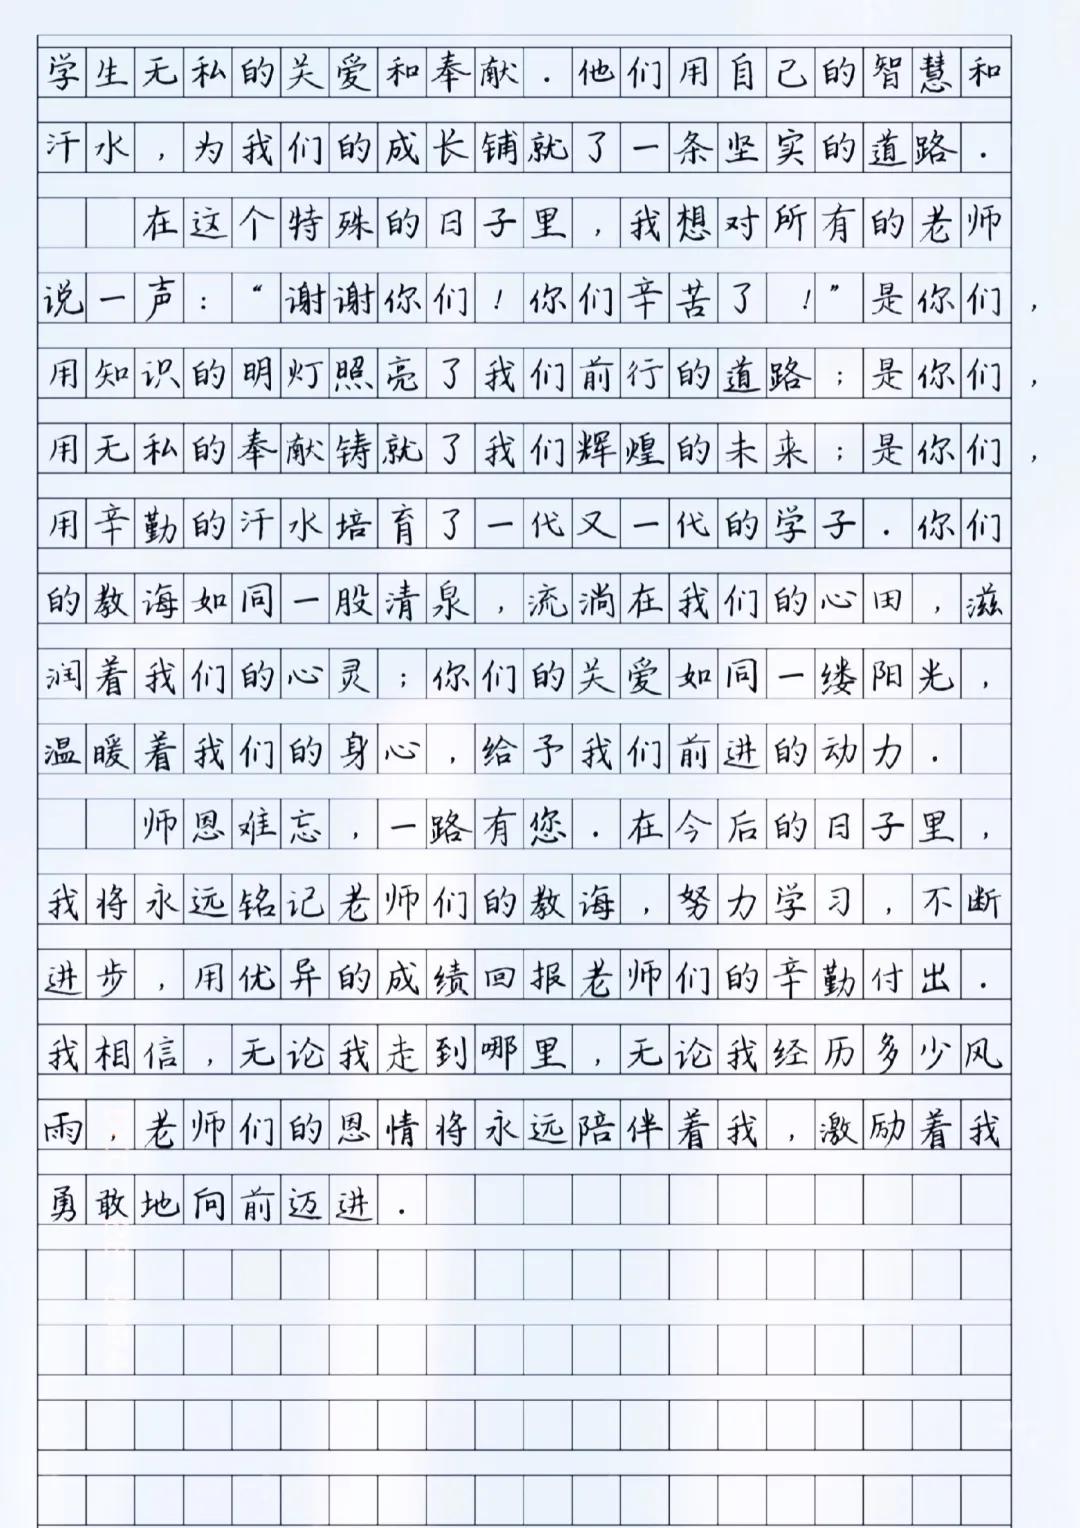 学生无私的关爱和奉献.他们用自己的智慧和
汗水,为我们的成长铺就了一条坚实的道路.
在这个特殊的日子里,我想对所有的老师
说一声:“谢谢你们!你们辛苦了!”是你们,
用知识的明灯照亮了我们前行的道路;是你们,
用无私的奉献铸就了我们辉煌的未来;是你们,
用辛勤的汗水培育了一代又一代的学子.你们
的教诲如同一股清泉,流淌在我们的心田,滋
润着我们的心灵;你们的关爱如同一缕阳光,
温暖着我们的身心,给予我们前进的动力.
师恩难忘,一路有您.在今后的日子里,
我将永远铭记老师们的教诲,努力学习,不断
进步,用优异的成绩回报老师们的辛勤付出.
我相信,无论我走到哪里,无论我经历多少风
雨,老师们的恩情将永远陪伴着我,激励着我
勇敢地向前迈进.